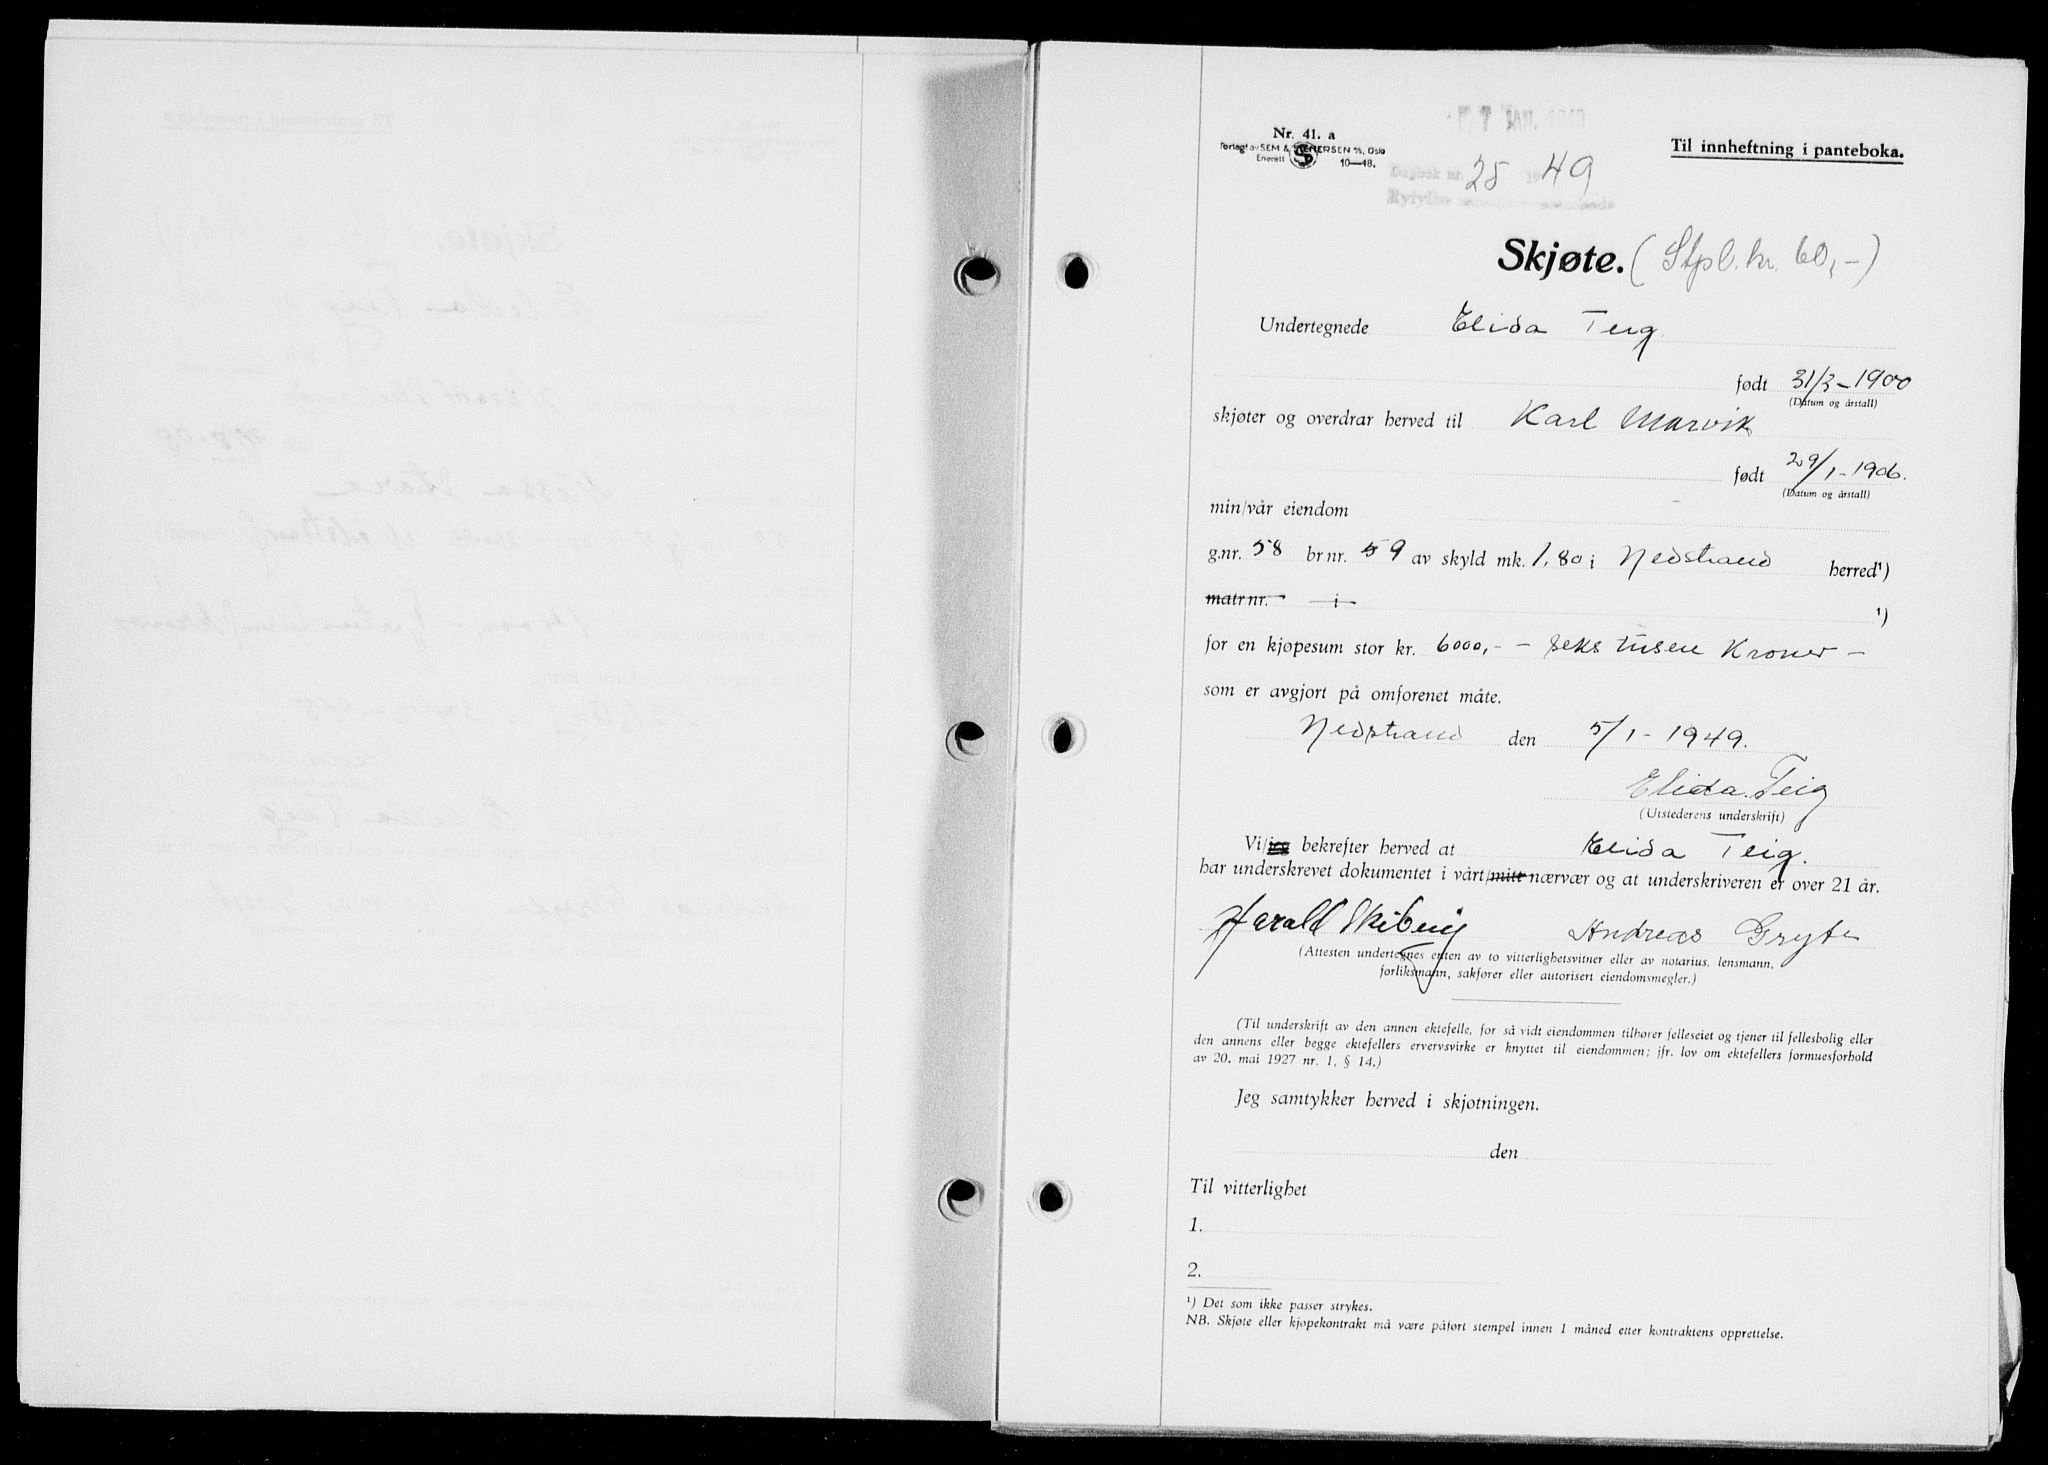 Nr. 41. a
Forlagt av SEM & STENERSEN A/S, Oslo
Enerett 10—48.
Til innheftning i panteboka.
Dagbok nr. 25 19 49
Skjøte. (Stpl. kr. 60,-)
Undertegnede Elida Teig
født 31/3-1900
(Datum og årstall)
skjøter og overdrar herved til Karl Marvik
født 29/1-1906.
(Datum og årstall)
min/vår eiendom
g.nr. 58 br nr. 59 av skyld mk. 1,80 i Nedstrand herred¹)
matr nr. i ¹)
for en kjøpesum stor kr. 6000,- - seks tusen Kroner -
som er avgjort på omforenet måte.
Nedstrand den 5/1-1949.
Elida Teig
(Utstederens underskrift)
Vi/jeg bekrefter herved at Elida Teig.
har underskrevet dokumentet i vårt/mitt nærvær og at underskriveren er over 21 år.
Harald Andreas
(Attesten undertegnes enten av to vitterlighetsvitner eller av notarius, lensmann,
forliksmann, sakfører eller autorisert eiendomsmegler.)
(Til underskrift av den annen ektefelle, for så vidt eiendommen tilhører felleseiet og tjener til fellesbolig eller
den annens eller begge ektefellers ervervsvirke er knyttet til eiendommen; jfr. lov om ektefellers formuesforhold
av 20. mai 1927 nr. 1, § 14.)
Jeg samtykker herved i skjøtningen.
den
Til vitterlighet
1.
2.
¹) Det som ikke passer strykes.
NB. Skjøte eller kjøpekontrakt må være påført stempel innen 1 måned etter kontraktens opprettelse.